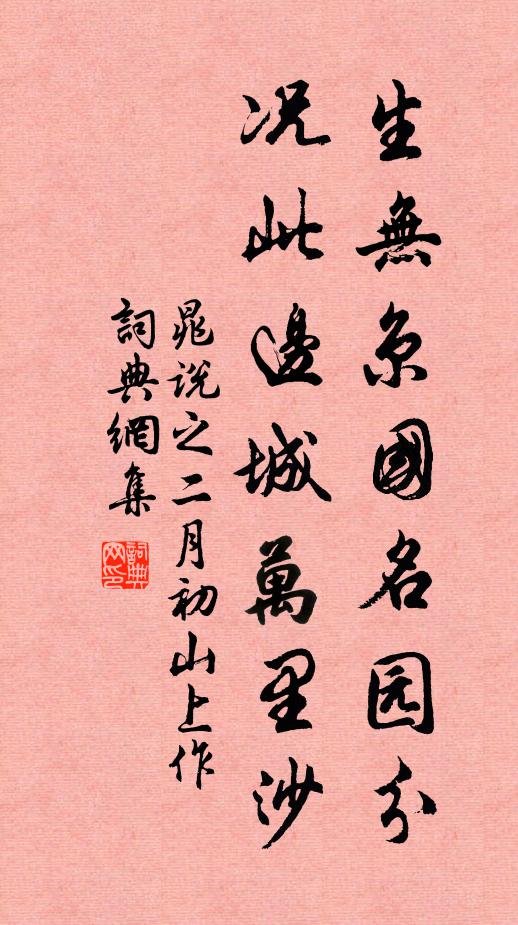 生無京國名园分
况此邊城萬里沙
晁説之二月初山上作
詞典網集
詞典网印